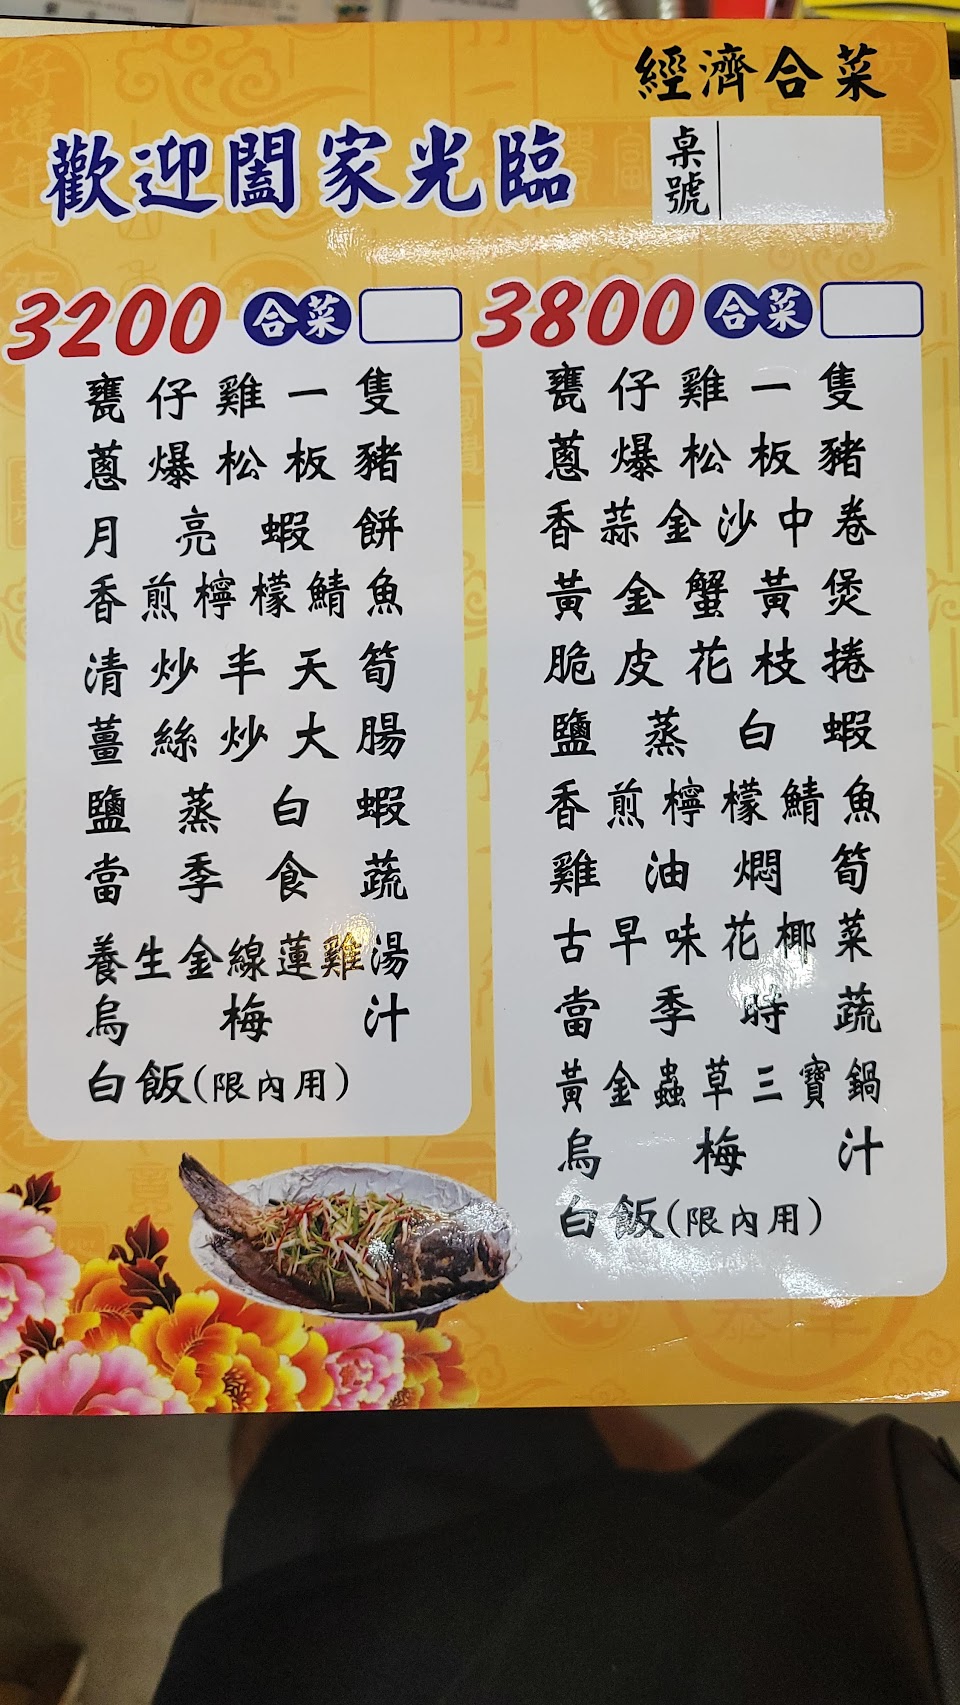 經濟合菜
歡迎闔家光臨
桌號
3200 合菜
甕仔雞一隻
蔥爆松板豬
月亮蝦餅
香煎檸檬鯖魚
清炒半天筍
薑絲炒大腸
鹽蒸白蝦
當季食蔬
養生金線蓮雞湯
烏梅汁
白飯(限內用)
3800 合菜
甕仔雞一隻
蔥爆松板豬
香蒜金沙中卷
黃金蟹黃煲
脆皮花枝捲
鹽蒸白蝦
香煎檸檬鯖魚
雞油燜筍
古早味花椰菜
當季時蔬
黃金蟲草三寶鍋
烏梅汁
白飯(限內用)